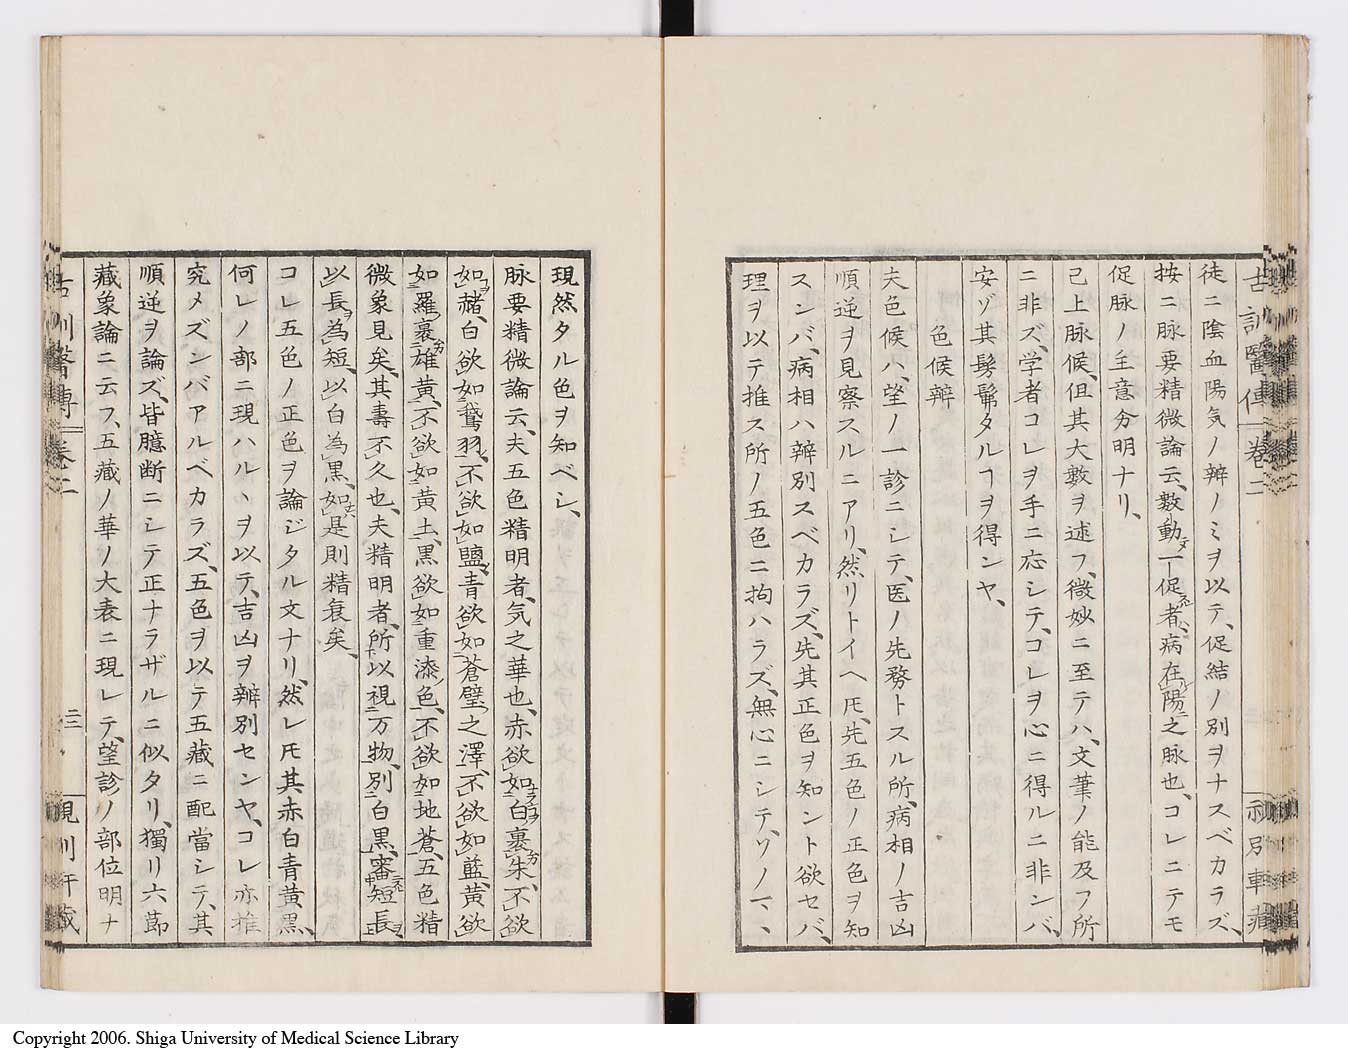 徒ニ陰血陽気ノ辨ノミヲ以テ、促結ノ別ヲナスベカラズ、
按ニ脉要精微論云、数動一促者、病在陽之脉也、コレニテモ
促脉ノ主意分明ナリ、
已上脉候、但其大數ヲ述フ、微妙ニ至テハ、文筆ノ能及フ所
ニ非ズ、学者コレヲ手ニ応シテ、コレヲ心ニ得ルニ非ンバ、
安ゾ其髣髴タルヿヲ得ンヤ、
色候辨
夫色候ハ、望ノ一診ニシテ、医ノ先務トスル所、病相ノ吉凶
順逆ヲ見察スルニアリ、然リトイヘ𪜈、先五色ノ正色ヲ知
スンバ、病相ハ辨別スベカラズ、先其正色ヲ知ント欲セバ、
理ヲ以テ推ス所ノ五色ニ拘ハラズ、無心ニシテ、ソノマヽ
現然タル色ヲ知ベシ、
脉要精微論云、夫五色精明者、気之華也、赤欲如白裹朱、不欲
如赭、白欲如鵞羽、不欲如鹽、青欲如蒼璧之澤、不欲如藍、黄欲
如羅裹雄黄、不欲如黄土、黒欲如重漆色、不欲如地蒼、五色精
微象見矣、其壽不久也、夫精明者、所以視万物、別白黒、審短長、
以長為短、以白為黒、如是則精衰矣、
コレ五色ノ正色ヲ論ジタル文ナリ、然レ𪜈其赤白青黄黒、
何レノ部ニ現ハルヽヲ以テ、吉凶ヲ辨別センヤ、コレ亦推
究メズンバアルベカラズ、五色ヲ以テ五藏ニ配當シテ、其
順逆ヲ論ズ、皆臆断ニシテ正ナラザルニ似タリ、獨リ六節
藏象論ニ云フ、五藏ノ華ノ大表ニ現レテ、望診ノ部位明ナ
古訓醫傳 卷二
三
Copyright 2006. Shiga University of Medical Science Library